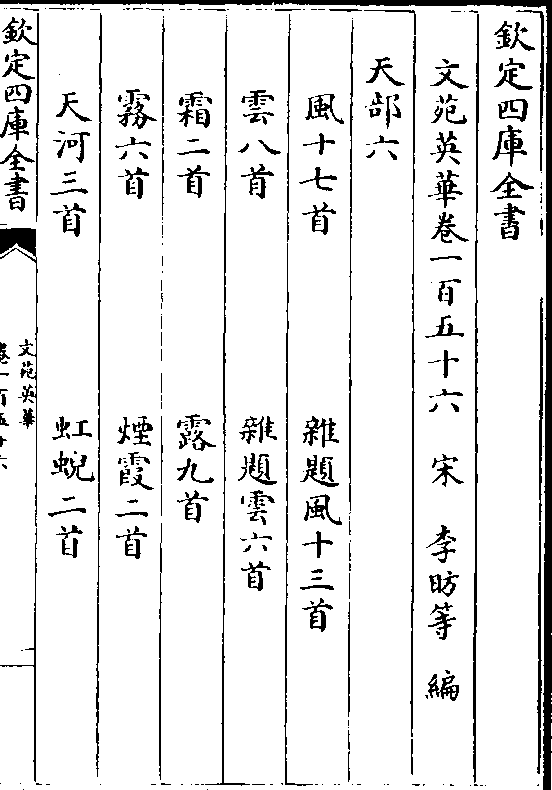 欽定四庫全書
文苑英華卷一百五十六 宋 李昉等 編
天部六
風十七首 雜題風十三首
雲八首 雜題雲六首
霜二首 露九首
霧六首 煙霞二首
天河三首 虹蜺二首
欽定四庫全書
文苑英華
卷一百五十六